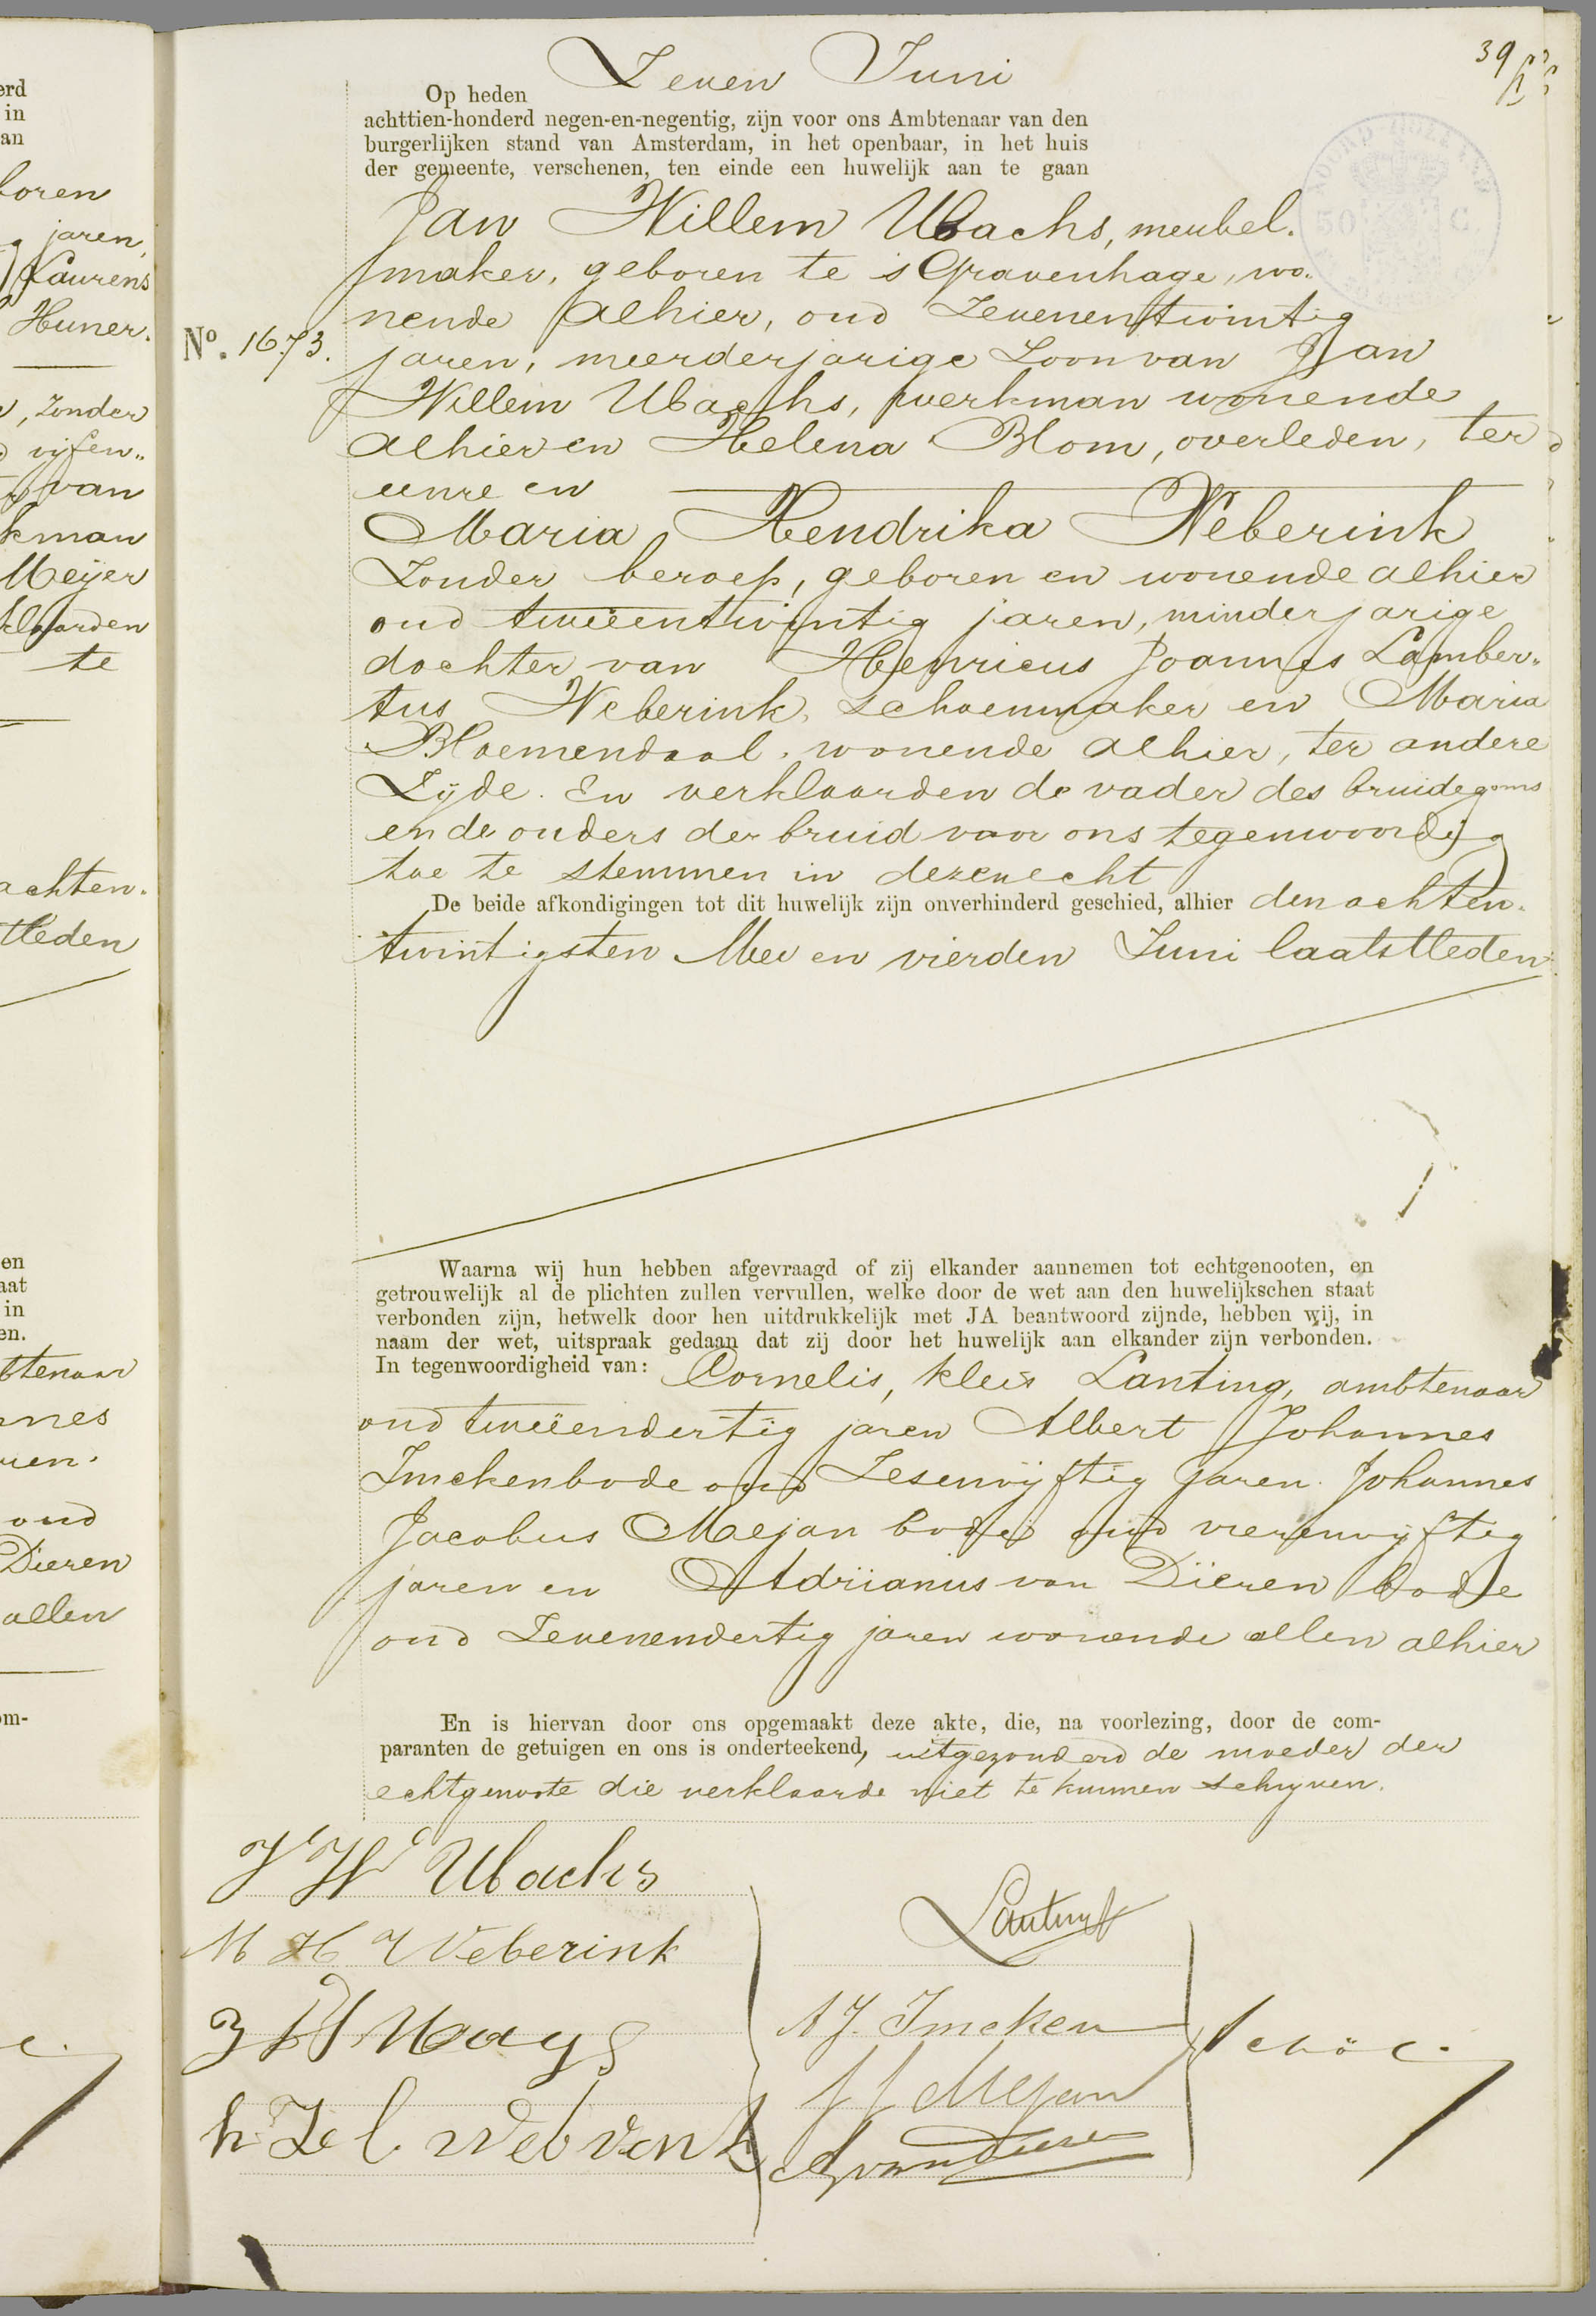 39
erd
in
an
boren
jaren,
Laurens
Huner.
, Zonder
vijfen„
van
kman
Meijer
klaarden
te
achten.
tleden
en
aat
in
en.
btenaar
nnes
oud
Dieren
allen
om-
Zeven Juni
Op heden
achttien-honderd negen-en-negentig, zijn voor ons Ambtenaar van den
burgerlijken stand van Amsterdam, in het openbaar, in het huis
der gemeente, verschenen, ten einde een huwelijk aan te gaan
NOORD HOLLAND
50 C
Jan Willem Ubachs, meubel.
maker, geboren te 's Gravenhage, wo.
nende alhier, oud Zevenentwintig
No. 1673.
jaren, meerderjarige Zoon van Jan
Willem Ubachs, werkman wonende
alhier en Helena Blom, overleden, ter
eenre en
Maria Hendrika Weberink
Zonder beroep, geboren en wonende alhier
oud tweeëntwintig jaren, minderjarige
dochter van Henricus Joannes Lamber„
tus Weberink, schoenmaker en Maria
Bloemendaal, wonende alhier, ter andere
Zijde. En verklaarden de vader des bruidegoms
en de ouders der bruid voor ons tegenwoordig
toe te stemmen in dezen echt
De beide afkondigingen tot dit huwelijk zijn onverhinderd geschied, alhier den achten.
twintigsten Mei en vierden Juni laatstleden
Waarna wij hun hebben afgevraagd of zij elkander aannemen tot echtgenooten, en
getrouwelijk al de plichten zullen vervullen, welke door de wet aan den huwelijkschen staat
verbonden zijn, hetwelk door hen uitdrukkelijk met JA beantwoord zijnde, hebben wij, in
naam der wet, uitspraak gedaan dat zij door het huwelijk aan elkander zijn verbonden.
In tegenwoordigheid van: Cornelis, Lanting, ambtenaar
oud tweeëndertig jaren Albert Johannes
Imcken bode oud Zesenvijftig jaren. Johannes
Jacobus Mejan bode oud vierenvijftig
jaren en Adrianus van Dieren bode
oud Zevenendertig jaren wonende allen alhier
En is hiervan door ons opgemaakt deze akte, die, na voorlezing, door de com-
paranten de getuigen en ons is onderteekend, uitgezonderd de moeder der
echtgenoote die verklaarde niet te kunnen schrijven.
J W Ubachs
M H Weberink
Lanting
A J. Imcken
J J Mejan
A van Dieren